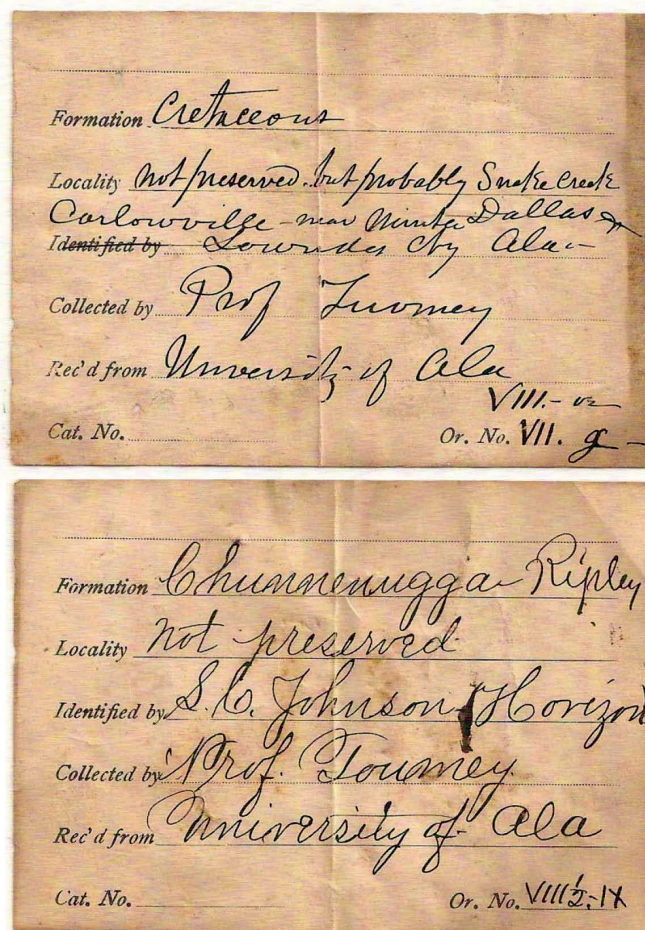 Formation Cretaceous
Locality not preserved. but probably Snake Creek
Carlowville - near Dallas &
Identified by Lowndes Cty Ala-
Collected by Prof Tuomey
Rec'd from University of Ala
VIII.-
Cat. No. Or. No. VII. g -
Formation Chunnenugga Ripley
Locality not preserved
Identified by S.C. Johnson (Horizon
Collected by Prof. Toumey.
Rec'd from University of Ala
Cat. No. Or. No. VIII½-IX